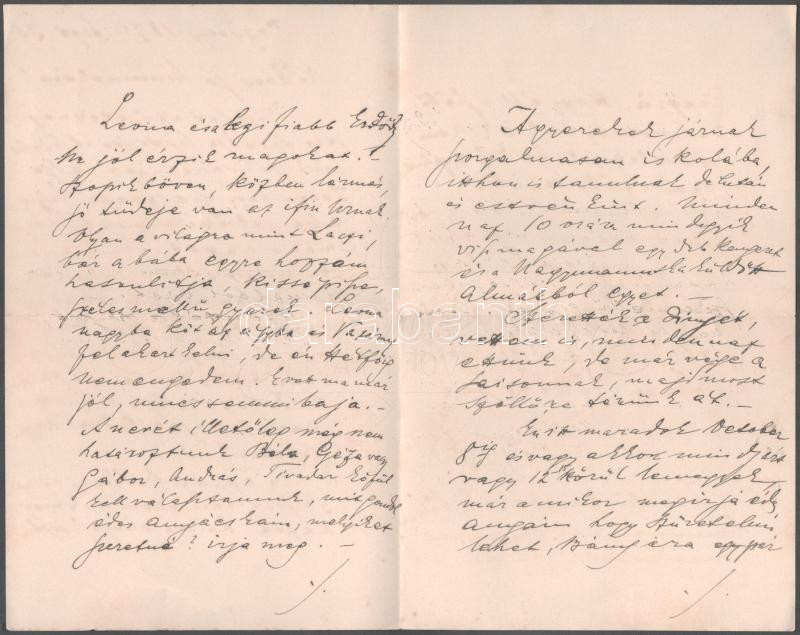 Leona és a legifiabb Erdődy
ke jól érzik magokat. –
Szopik bőven, közben lármás,
jó tüdeje van az ifiu urnak.
Olyan a világra mint Laczi,
bár a bába egyre hozzám
hasonlitja, kissé pipe,
szélesmellű gyerek. Leona
nagyba köt az ágyba és Vasárnap
felakart kelni, de én Hétfőig
nem engedem. Evett ma már
jól, nincs semmi baja. –
A nevét illetőleg még nem
határoztunk Béla, Géza vagy
Gábor, András, Tivadar közül
kell választanunk, mit gondol
édes anyácskám, melyiket
szeretné? irja meg. –
./.
A gyerekek járnak
szorgalmasan iskolába,
itthon is tanulnak délután
és estenkint. Minden
nap 10 órára mindegyik
visz magával egy drb kenyeret
és a Nagymama küldött
Almákból egyet. –
Szerették a dinnyét,
vettem is, minden nap
ettünk, de már vége a
saisonnak, majd most
szőllőre térünk át. –
Én itt maradok October
8ig és vagy akkor mindjárt
vagy 12 körül lemegyek,
már amikor megirja édes
anyám hogy szüretelni
lehet, Bányára egy pár
./.
darabanth